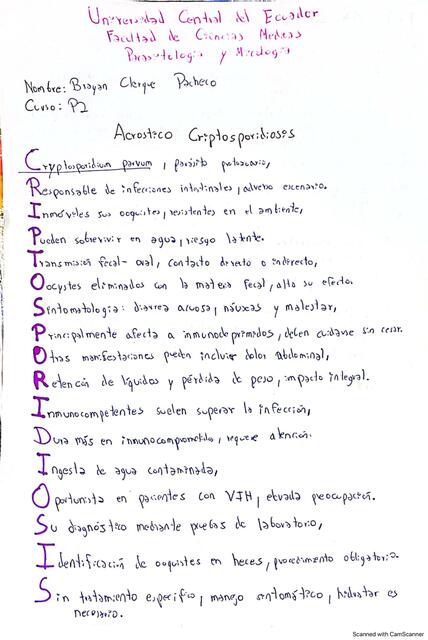 Universidad Central del Ecuador
Facultad de Ciencias Médicas
Parasitología y Micología
Nombre: Brayan Clerque Pacheco
Curso: P2
Acrostico Criptosporidiosis
Cryptosporidium parvum, parásito protozoario,
Responsable de infecciones intestinales, adverso escenario.
Inmóviles sus ooquistes, resistentes en el ambiente,
Pueden sobrevivir en agua, riesgo latente.
Transmisión fecal-oral, contacto directo o indirecto,
Oocystes eliminados con la materia fecal, alto su efecto.
Sintomatología: diarrea acuosa, náuseas y malestar,
Principalmente afecta a inmunodeprimidos, deben cuidarse sin cesar.
Otras manifestaciones pueden incluir dolor abdominal,
Retención de líquidos y pérdida de peso, impacto integral.
Inmunocompetentes suelen superar la infección,
Dura más en inmunocomprometido, requiere atención.
Ingesta de agua contaminada,
Oportunista en pacientes con VIH, elevada preocupación.
Su diagnóstico mediante pruebas de laboratorio,
Identificación de ooquistes en heces, procedimiento obligatorio.
Sin tratamiento específico, manejo sintomático, hidratar es
necesario.
Scanned with CamScanner